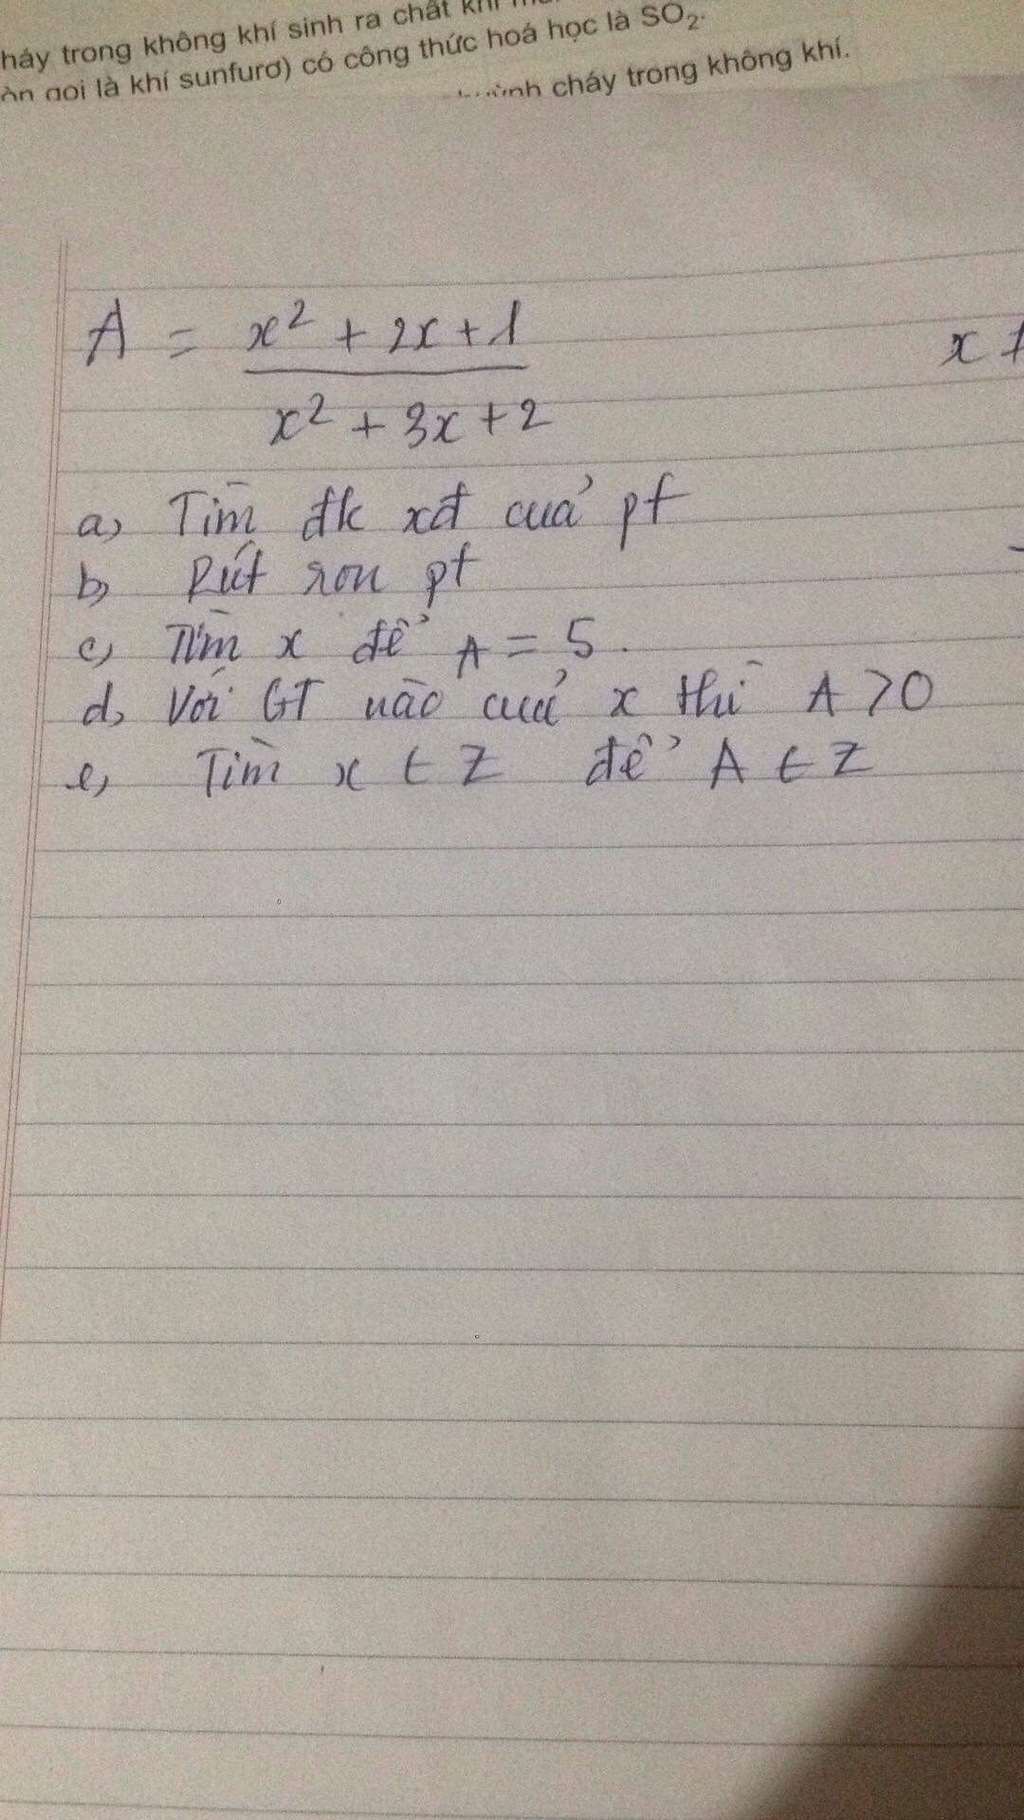 háy trong không khí sinh ra chất khí
gọi là khí sunfurơ) có công thức hoá học là SO₂.
cháy trong không khí.
A = x² + 2x + 1
x² + 3x + 2
x ≠
a, Tìm đk xđ cuả pt
b, Rút ron pt
c, Tìm x để A = 5.
d, Với GT nào cuả x thì A > 0
e, Tìm x ∈ Z để A ∈ Z